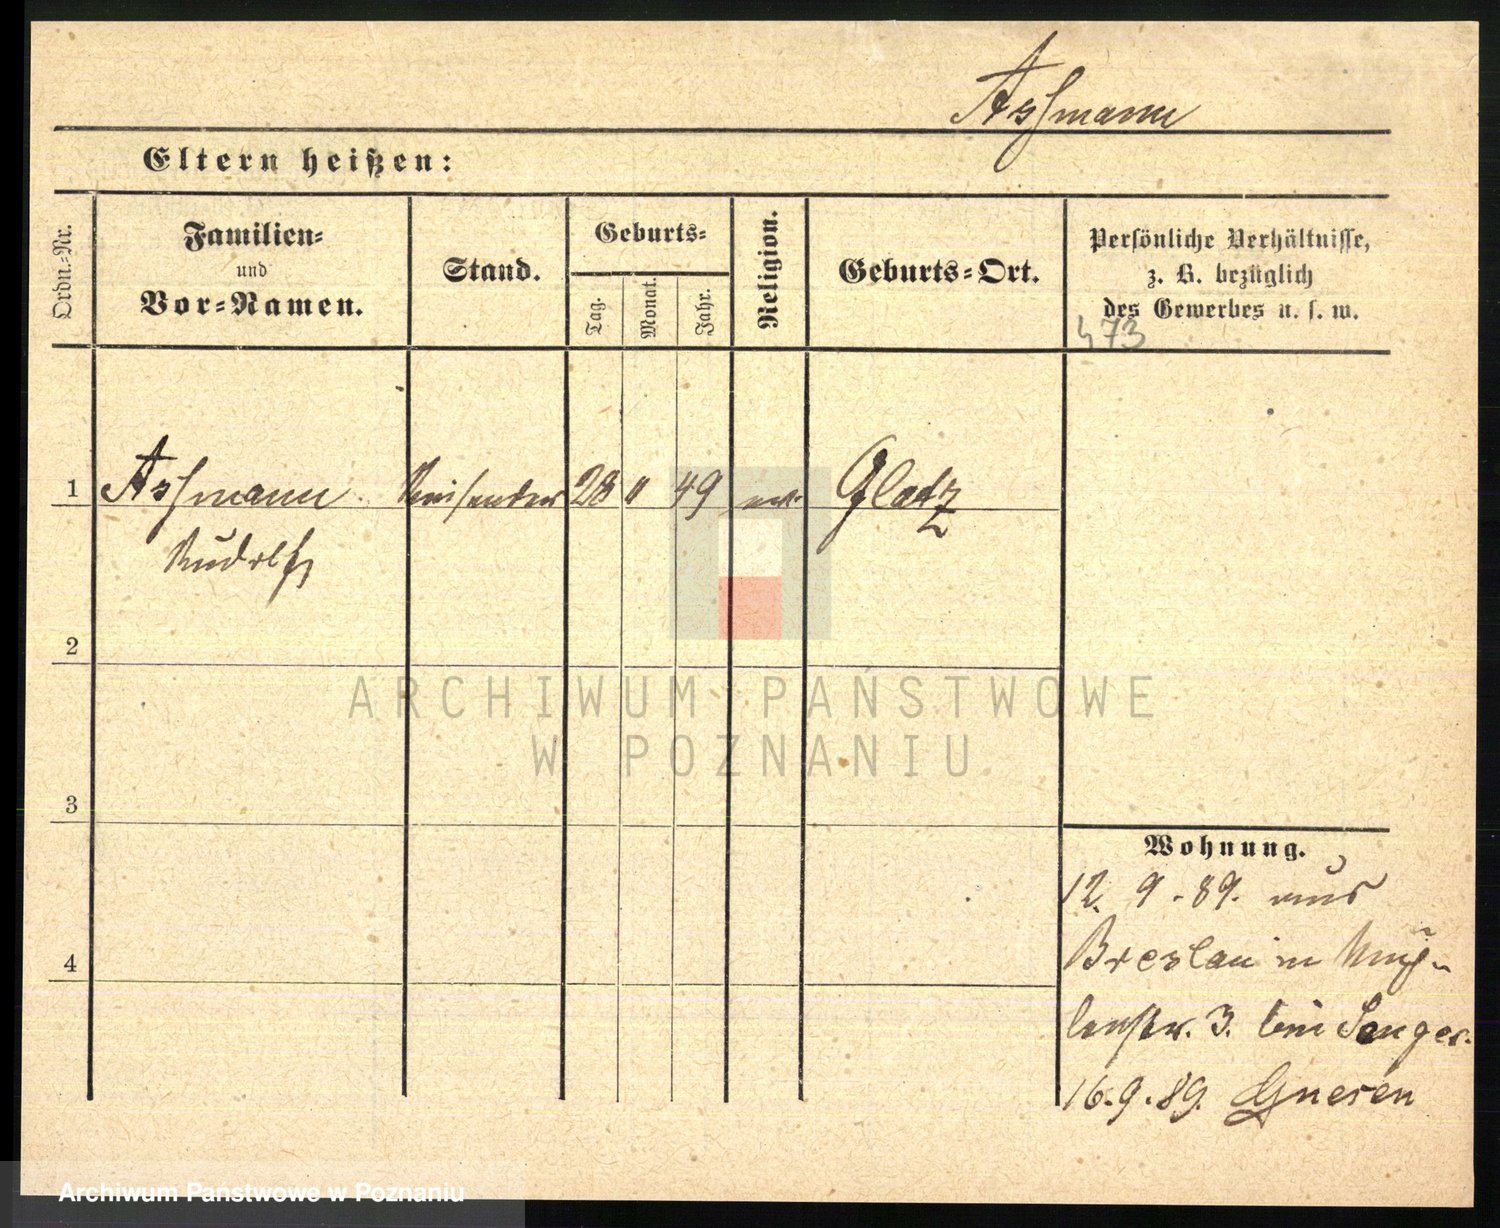 Aſsmann
Eltern heißen:
Ordn.-Nr.
Familien-
und
Vor-Namen.
Stand.
Geburts-
Tag.
Monat.
Jahr.
Religion.
Geburts-Ort.
Persönliche Verhältnisse,
z. B. bezüglich
des Gewerbes u. s. w.
473
1 Aſsmann Reisender 28 " 49 Glatz
Rudolf
2
ARCHIWUM PAŃSTWOWE
W POZNANIU
3
Wohnung.
12. 9. 89. aus
Breslau in Müh-
lenstr. 3. bei Senger.
4
16. 9. 89. Gnesen
Archiwum Państwowe w Poznaniu